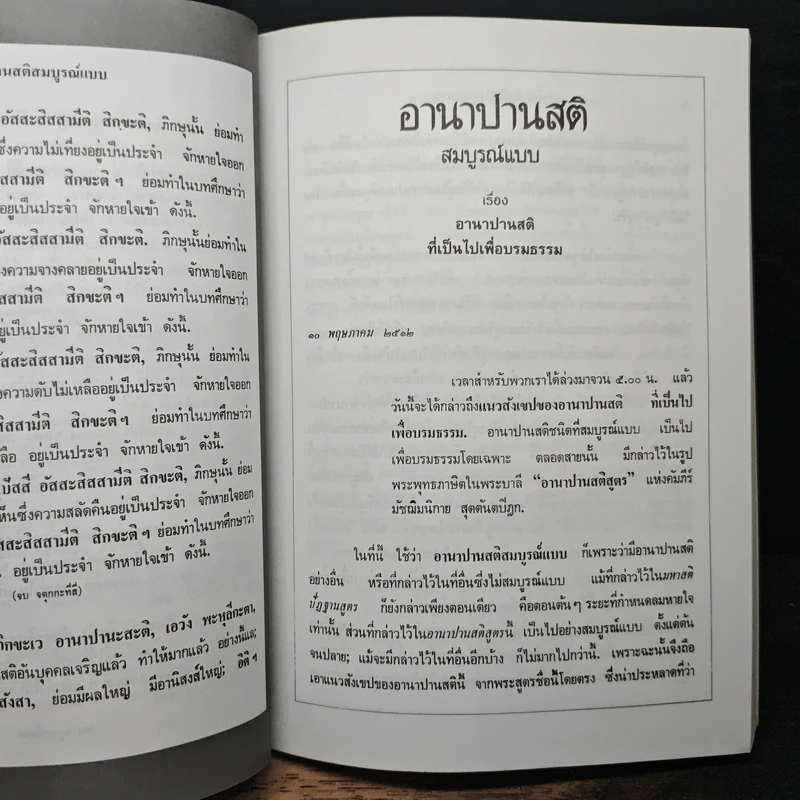 านสติสมบูรณ์แบบ
อัสสะสิสสามีติ สิกขะติ, ภิกษุนั้น ย่อมทำ
ซึ่งความไม่เที่ยงอยู่เป็นประจำ จักหายใจออก
สสามีติ สิกขะติฯ ย่อมทำในบทศึกษาว่า
อยู่เป็นประจำ จักหายใจเข้า ดังนี้.
อัสสะสิสสามีติ สิกขะติ. ภิกษุนั้นย่อมทำใน
งความจางคลายอยู่เป็นประจำ จักหายใจออก
สสามีติ สิกขะติฯ ย่อมทำในบทศึกษาว่า
อยู่เป็นประจำ จักหายใจเข้า ดังนี้.
อัสสะสิสสามีติ สิกขะติ, ภิกษุนั้น ย่อมทำใน
งความดับไม่เหลืออยู่เป็นประจำ จักหายใจออก
สสะสิสสามีติ สิกขะติฯ ย่อมทำในบทศึกษาว่า
ลือ อยู่เป็นประจำ จักหายใจเข้า ดังนี้.
ปัสสี อัสสะสิสสามีติ สิกขะติ, ภิกษุนั้น ย่อม
ห็นซึ่งความสลัดคืนอยู่เป็นประจำ จักหายใจออก
สสะสิสสามีติ สิกขะติฯ ย่อมทำในบทศึกษาว่า
อยู่เป็นประจำ จักหายใจเข้า ดังนี้.
(จบ จตุกกะที่สี่)
ภิกขะเว อานาปานะสะติ, เอวัง พะหุลีกะตา,
สติอันบุคคลเจริญแล้ว ทำให้มากแล้ว อย่างนี้แล;
สังสา, ย่อมมีผลใหญ่ มีอานิสงส์ใหญ่; อิติ ฯ
อานาปานสติ
สมบูรณ์แบบ
เรื่อง
อานาปานสติ
ที่เป็นไปเพื่อบรมธรรม
๑๐ พฤษภาคม ๒๕๑๒
เวลาสำหรับพวกเราได้ล่วงมาจวน ๕.๐๐ น. แล้ว
วันนี้จะได้กล่าวถึงแนวสังเขปของอานาปานสติ ที่เป็นไป
เพื่อบรมธรรม. อานาปานสติชนิดที่สมบูรณ์แบบ เป็นไป
เพื่อบรมธรรมโดยเฉพาะ ตลอดสายนั้น มีกล่าวไว้ในรูป
พระพุทธภาษิตในพระบาลี “อานาปานสติสูตร” แห่งคัมภีร์
มัชฌิมนิกาย สุตตันตปิฎก.
ในที่นี้ ใช้ว่า อานาปานสติสมบูรณ์แบบ ก็เพราะว่ามีอานาปานสติ
อย่างอื่น หรือที่กล่าวไว้ในที่อื่นซึ่งไม่สมบูรณ์แบบ แม้ที่กล่าวไว้ในมหาสติ
ปัฏฐานสูตร ก็ยังกล่าวเพียงตอนเดียว คือตอนต้นๆ ระยะที่กำหนดลมหายใจ
เท่านั้น ส่วนที่กล่าวไว้ในอานาปานสติสูตรนี้ เป็นไปอย่างสมบูรณ์แบบ ตั้งแต่ต้น
จนปลาย; แม้จะมีกล่าวไว้ในที่อื่นอีกบ้าง ก็ไม่มากไปกว่านี้. เพราะฉะนั้นจึงถือ
เอาแนวสังเขปของอานาปานสตินี้ จากพระสูตรชื่อนี้โดยตรง ซึ่งน่าประหลาดที่ว่า